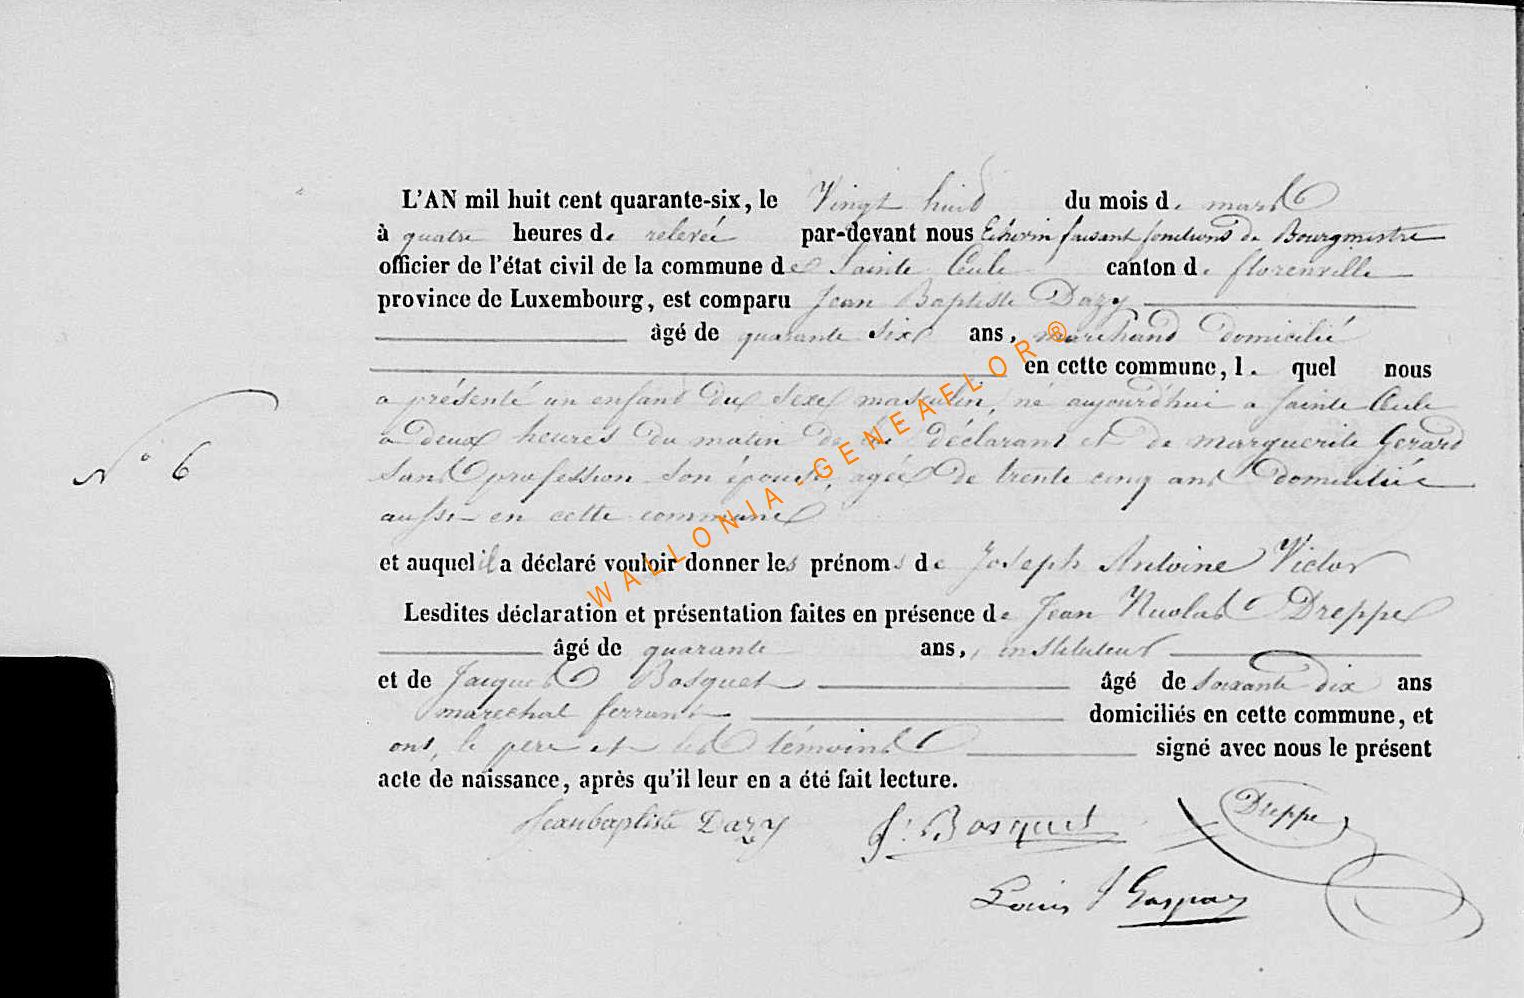 L'AN mil huit cent quarante-six, le Vingt huit du mois de mars
à quatre heures de relevée par-devant nous Echevin faisant fonctions de Bourgmestre
officier de l'état civil de la commune de Sainte Cecile canton de florenville
province de Luxembourg, est comparu Jean Baptiste Dazy
âgé de quarante six ans, marchand domicilié
en cette commune, le quel nous
a présenté un enfant du sexe masculin, né aujourd'hui a Sainte Cecile
a deux heures du matin de lui déclarant et de marguerite Gerard
sans profession son épouse, agée de trente cinq ans domiciliée
aussi en cette commune
N° 6
et auquel il a déclaré vouloir donner les prénoms de Joseph Antoine Victor
Lesdites déclaration et présentation faites en présence de Jean Nicolas Dreppe
âgé de quarante ans, instituteur
et de Jacques Bosquet âgé de soixante dix ans
marechal ferrant domiciliés en cette commune, et
ont, le pere et les témoins signé avec nous le présent
acte de naissance, après qu'il leur en a été fait lecture.
Jeanbaptiste Dazy J: Bosquet Dreppe
Louis J Gaspar
WALLONIA-GENEAFLOR®